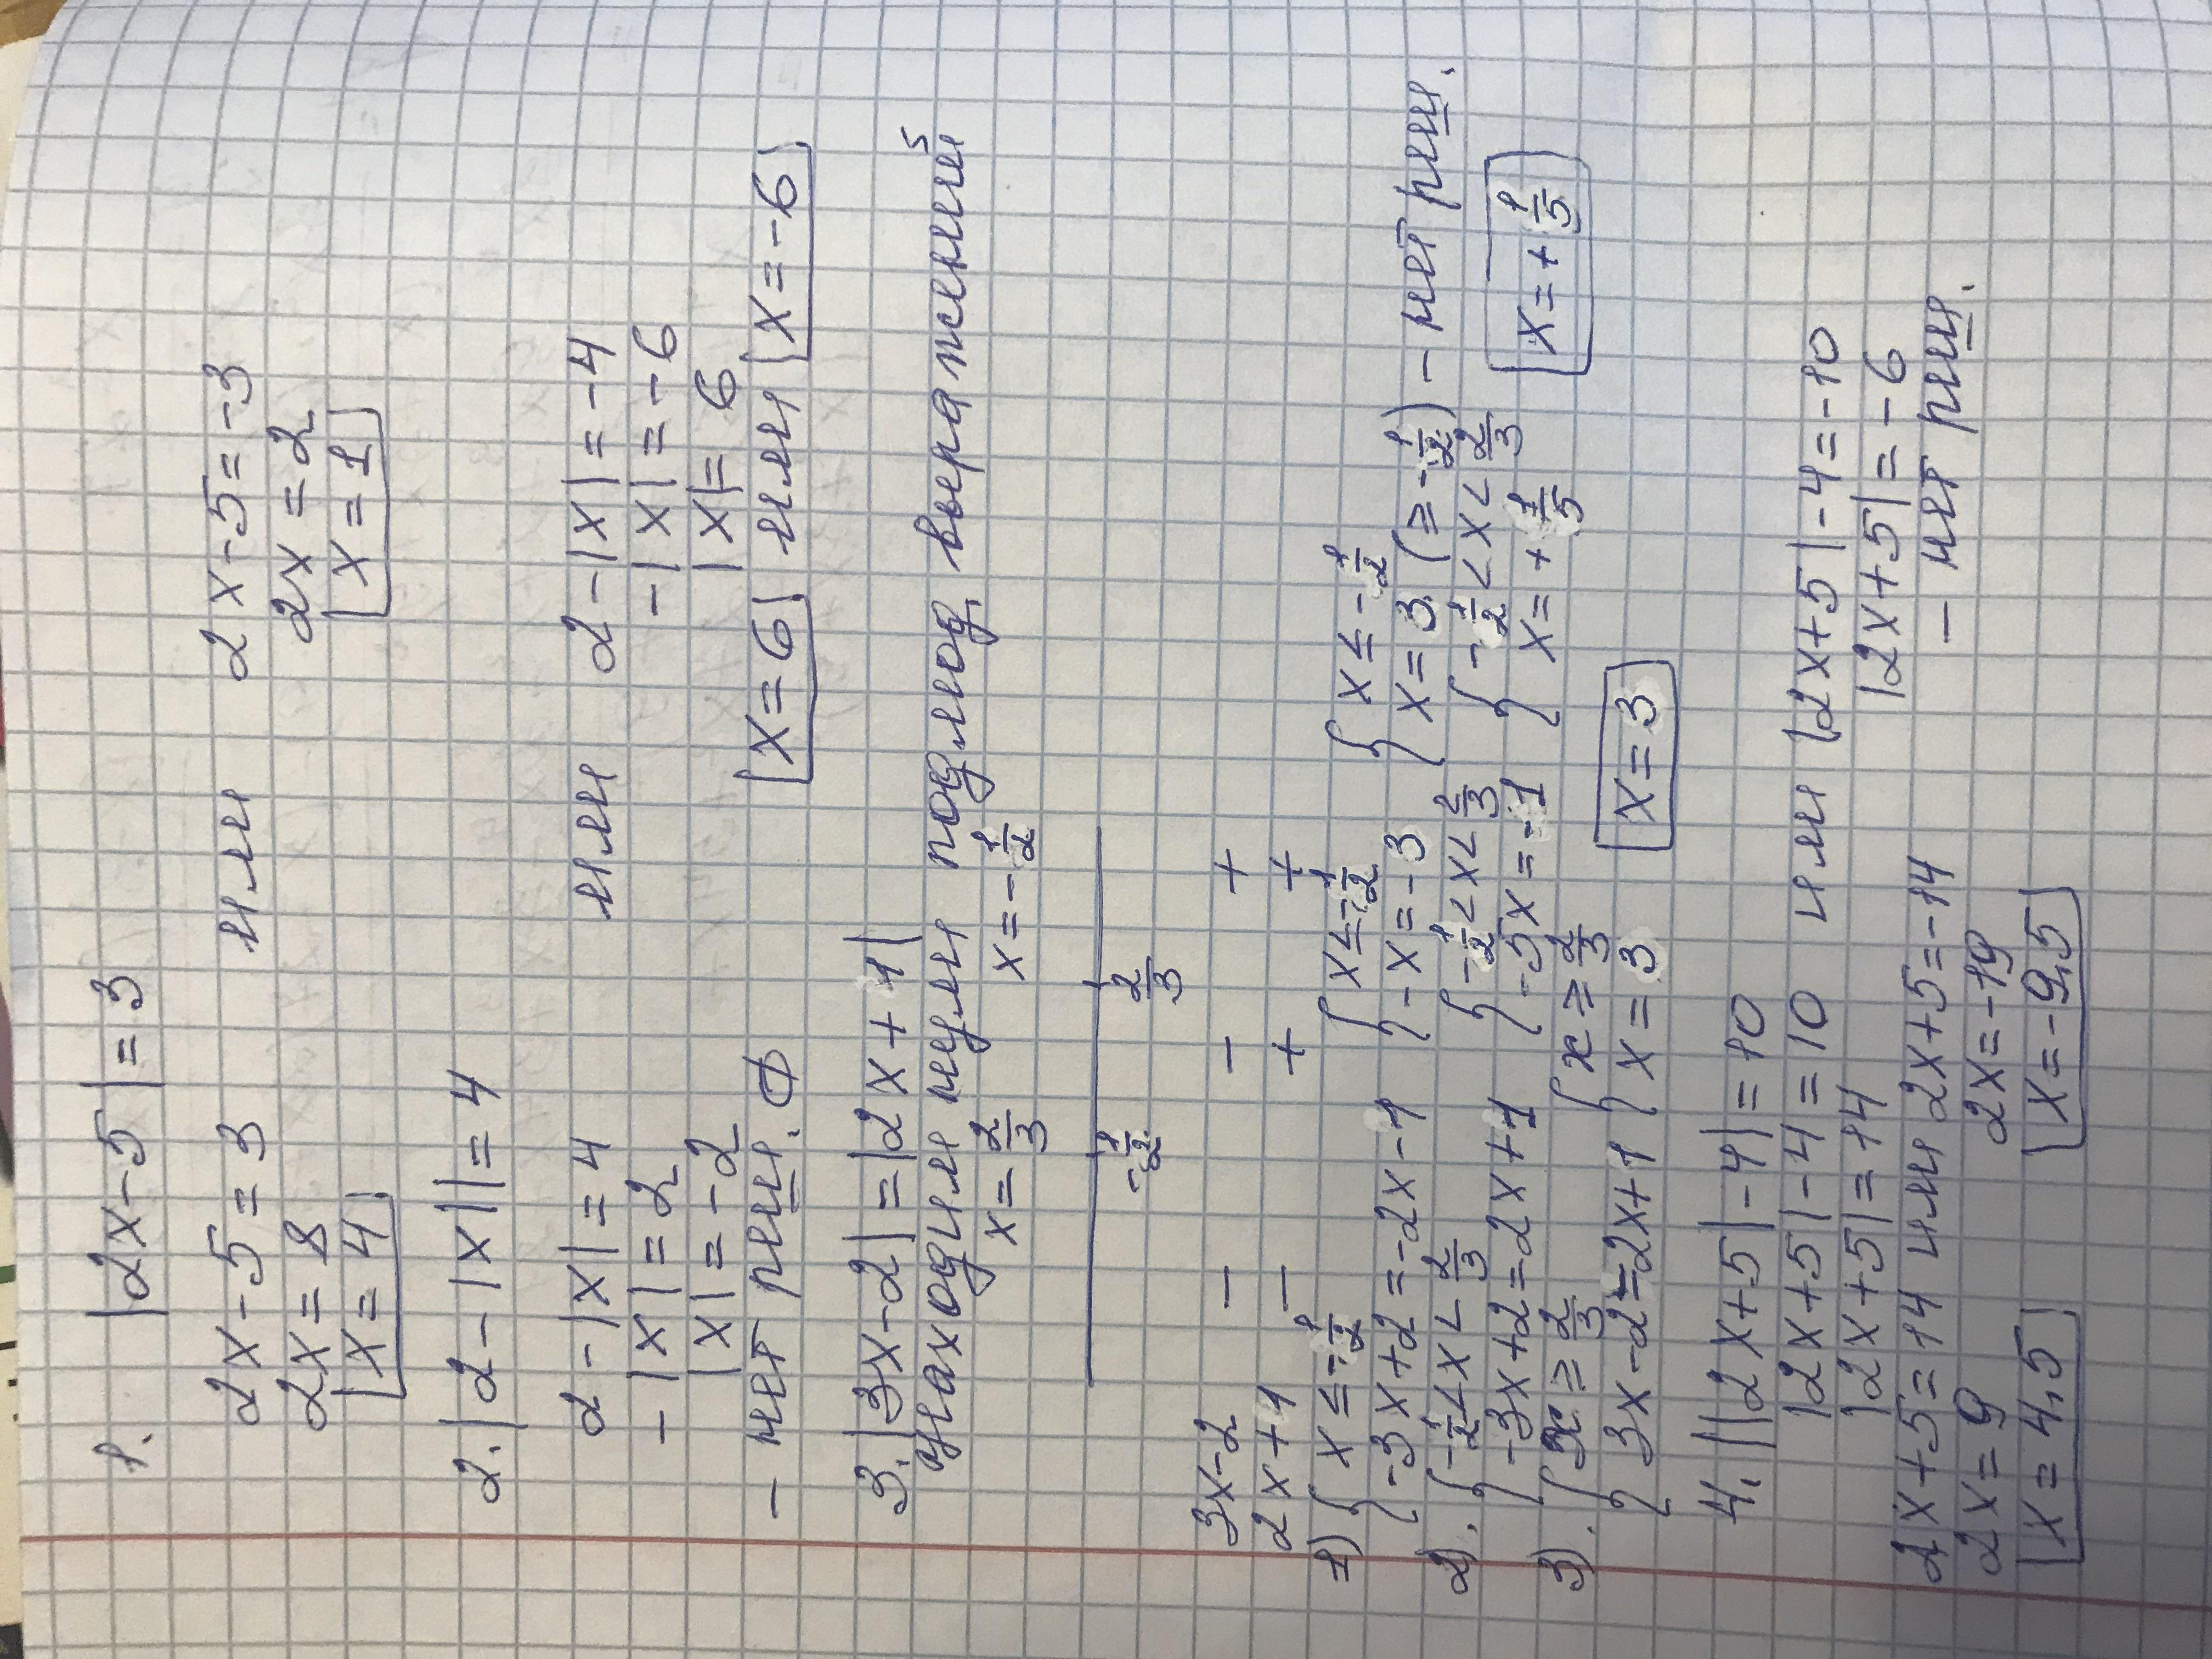 1. |2x-5|=3
2x-5=3 или 2x-5=-3
2x=8 2x=2
x=4 x=1
2. |2-|x||=4
2-|x|=4 или 2-|x|=-4
-|x|=2 -|x|=-6
|x|=-2 |x|=6
- нет реш. ∅ x=6 или x=-6
3. |3x-2|=|2x+1|
находим нули подмод. выражений
x=2/3 x=-1/2
-1/2 2/3
3x-2 - - +
2x+1 - + +
1) { x≤-1/2 { x≤-1/2 { x≤-1/2
-3x+2=-2x-1 -x=-3 x=3 (≥-1/2) - нет реш.
2). { -1/2<x<2/3 { -1/2<x<2/3 { -1/2<x<2/3
-3x+2=2x+1 -5x=-1 x=+1/5 x=+1/5
3). { x≥2/3 { x≥2/3
3x-2=2x+1 x=3 x=3
4. ||2x+5|-4|=10
|2x+5|-4=10 или |2x+5|-4=-10
|2x+5|=14 |2x+5|=-6
2x+5=14 или 2x+5=-14 - нет реш.
2x=9 2x=-19
x=4,5 x=-9,5